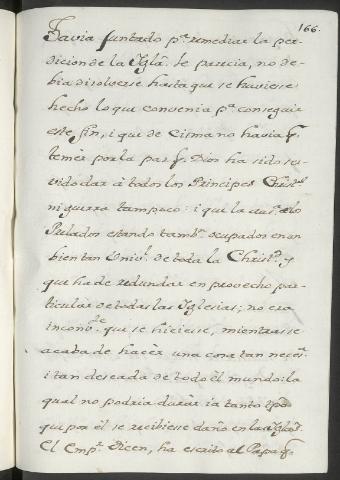 166.
havia juntado pª. remediar la per-
dicion de la Iglª. le parecia, no de-
bia disolverse hasta que se huviese
hecho lo que convenia pª. conseguir
este fin, i que de Cisma no havia q̃.
temer por la paz q̃. Dios ha sido ser-
vido dar à todos los Principes Christ.ˢ
ni guerra tampoco: i que la aus.ª de los
Prelados estando tamb.ⁿ ocupados en un
bien tan Univ.ˡ de toda la Christ.ᵈ y
que ha de redundar en provecho par-
ticular de todas las Iglesias; no era
inconv.ᵗᵉ que se hiciese, mientras se
acaba de hacèr una cosa tan neces.ª
i tan deseada de todo el mundo: la
qual no podria duràr ia tanto tpõ
qui por él se recibiese daño en las Iglªˢ.
El Emp.ʳ Dicen, ha escrito al Papa q̃.